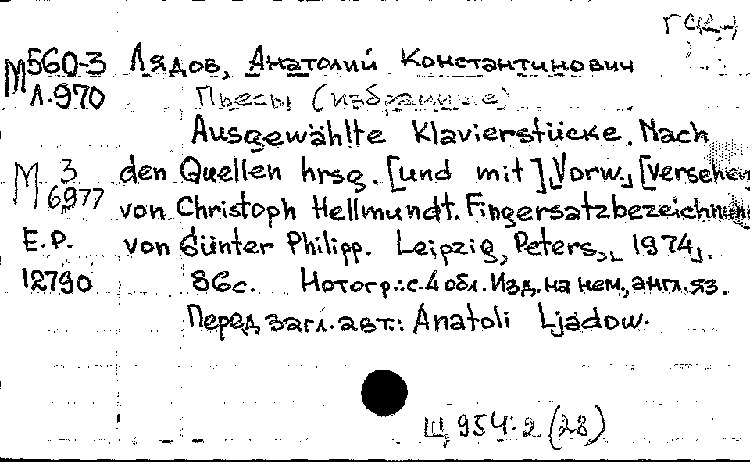 М560-3 Лядов, Анатолий Константинович
Л.970 Пьесы (избранные)
Ausgewählte Klavierstücke. Nach
М 3 den Quellen hrsg. [und mit] Vorw. [versehen
6977 von Christoph Hellmundt. Fingersatzbezeichnung
Е.Р. von Günter Philipp. Leipzig, Peters, 1974.
12790 86с. Нотогр.: с.4 обл. Изд. на нем., англ. яз.
Перед загл. авт.: Anatoli Ljadow.
Щ 954.2 (28)